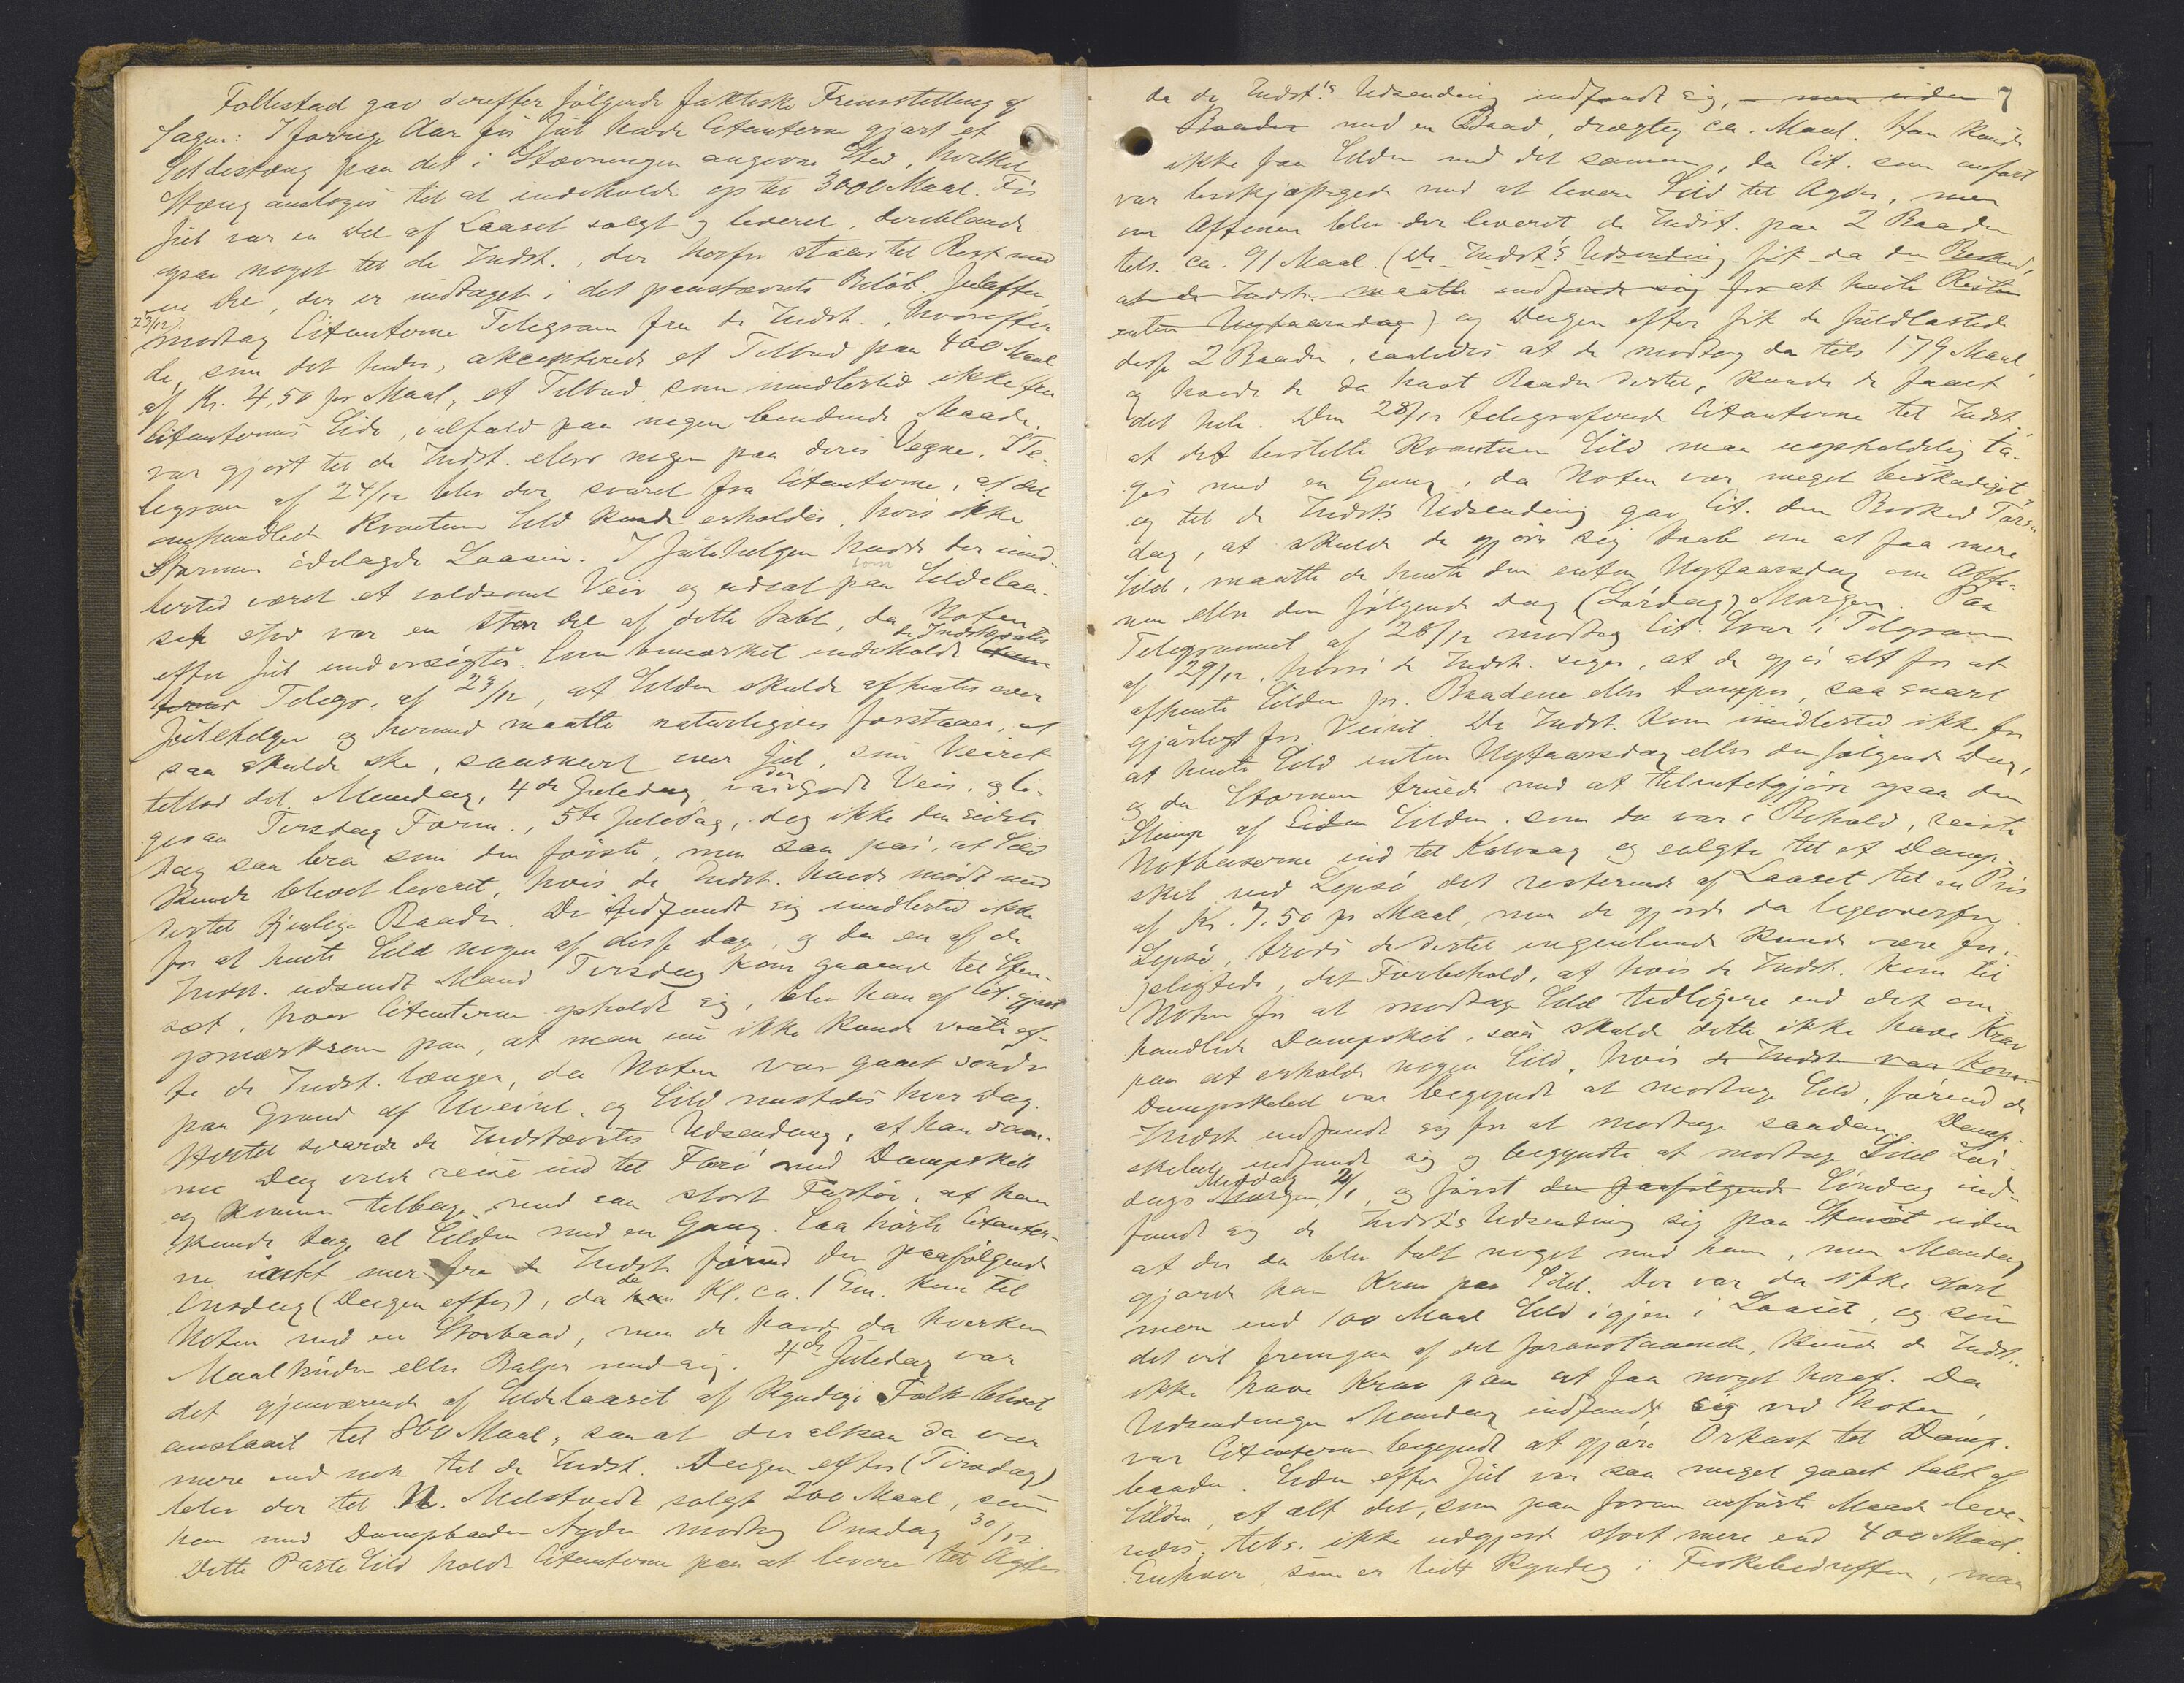 Follestad gav derefter følgende faktiske Fremstilling af
Sagen: I forrige Aar før Jul havde Citanterne gjort et
Sildestæng paa det i Stævningen angivne Sted, hvilket
Stæng ansloges til at indeholde op til 3000 Maal. Før
Jul var en Del af Laaset solgt og leveret, deriblandt
ogsaa noget til de Indst., der herfor staar til Rest med
en Del, der er indtaget i det paastævnte Beløb. Juleaften
23/12 modtog Citanterne Telegram fra de Indst., hvorefter
de, som det heder, akcepterede et Tilbud paa 400 Maal
af Kr. 4,50 pr Maal, et Tilbud som imidlertid ikke fra
Citanternes Side, ialfald paa nogen bindende Maade,
var gjort til de Indst. eller nogen paa deres Vegne. I Te-
legram af 24/12 blev der svaret fra Citanterne, at det
omhandlede Kvantum Sild kunde erholdes, hvis ikke
Stormen ødelagde Laasen. I Julehelgen havde der imid-
lertid været et voldsomt Veir og udsat som paa Sildelaa-
set stod var en stor Del af dette tabt, da Noten
efter Jul undersøgtes. Som bemærket indeholdt de Indstævntes
Telegr. af 23/12, at Silden skulde afhentes over
Julehelgen og herved maatte naturligvis forstaaes, at
saa skulde ske, saasnart over Jul, som Veiret
tillod det. Mandag, 4de Juledag var der godt Veir, og li-
gesaa Tirsdag Form., 5te Juledag, dog ikke den sidste
Dag saa bra som den første, men saa pas, at Sild
kunde blevet leveret, hvis de Indst. havde mødt med
dertil tjenlige Baade. De indfandt sig imidlertid ikke
for at hente Sild nogen af disse Dage, og da en af de
Indst. udsendt Mand Tirsdag kom gaaende til Sten-
søt, hvor Citanterne opholdt sig, blev han af Cit. gjort
opmærksom paa, at man nu ikke kunde vente ef-
te de Indst. længer, da Noten var gaaet sønder
paa Grund af Uveiret, og Sild mistedes hver Dag.
Hertil svarede de Indstævntes Udsending, at han sam-
me Dag vilde reise ind til Florø med Dampskib
og komme tilbage med saa stort Fartøi, at han
kunde tage al Silden med en Gang. Saa hørte Citanter-
ne intet mer fra de Indst. førend den paafølgende
Onsdag (Dagen efter), da de Kl. ca. 1 Em. kom til
Noten med en Storbaad, men de havde da hverken
Maaltønder eller Balger med sig. 4de Juledag var
det gjenværende af Sildelaaset af kyndige Folk blevet
anslaaet til 800 Maal, saa at der altsaa da var
mere end nok til de Indst. Dagen efter (Tirsdag)
blev der til N. Melstvedt solgt 200 Maal, som
han med Dampbaaden Agder modtog Onsdag 30/12.
Dette Parti Sild holdt Citanterne paa at levere til Agder
7
da de Indst's Udsending indfandt sig, men uden
Baader med en Baad, drægtig ca. Maal. Han kunde
ikke faa Silden med det samme, da Cit. som anført
var beskjæftigede med at levere Sild til Agder, men
om Aftenen blev der leveret de Indst. paa 2 Baader
tils. ca. 91 Maal. (De Indst's Udsending fik da den Besked,
at de Indst. maatte indfinde sig for at hente Resten
enten Nytaarsdag) og Dagen efter fik de fuldlastede
disse 2 Baader, saaledes at de modtog da tils 179 Maal,
og havde de da havt Baader dertil, kunde de faaet
det hele. Den 28/12 telegraferede Citanterne til Indst.,
at det bestilte Kvantum Sild maa uopholdelig ta-
ges med en Gang, da Noten var meget beskadiget
og til de Indst's Udsending gav Cit. den Besked Tors-
dag, at skulde de gjøre sig Haab om at faa mere
Sild, maatte de hente den enten Nytaarsdag om Afte-
nen eller den følgende Dag (Lørdag) Morgen. Paa
Telegrammet af 28/12 modtog Cit. Svar i Telegram
af 29/12, hvori de Indst. siger, at de gjør alt for at
afhente Silden pr. Baadene eller Damper, saa snart
gjørligt for Veiret. De Indst. kom imidlertid ikke for
at hente Sild enten Nytaarsdag eller den følgende Dag,
og da Stormen truede med at tilintetgjøre ogsaa den
Slump af Silden, som da var i Behold, reiste
Notbaserne ind til Kalvaag og solgte til et Damp-
skib ved Lepsø det resterende af Laaset til en Pris
af Kr. 7,50 pr Maal, men de gjorde da ligeoverfor
Lepsø, trods de dertil ingenlunde kunde være for-
pligtede, det Forbehold, at hvis de Indst. kom til
Noten for at modtage Sild tidligere end det om-
handlede Dampskib, saa skulde dette ikke have Krav
paa at erholde nogen Sild, hvis de Indst. var kom-
Dampskibet var begyndt at modtage Sild, førend de
Indst indfandt sig for at modtage saadan. Damp-
skibet indfandt sig og begyndte at modtage Sild Lør-
dags Middag Morgen 2/1, og først den paafølgende Søndag ind-
fandt sig de Indst's Udsending sig paa Stensøt uden
at der da blev talt noget med ham, men Mandag
gjorde han Krav paa Sild. Der var da ikke stort
mere end 100 Maal Sild igjen i Laaset, og som
det vil fremgaa af det foranstaaende, kunde de Indst.
ikke have Krav paa at faa noget heraf. Da
Udsendingen Mandag indfandt sig ved Noten,
var Citanterne begyndt at gjøre Orkast til Damp-
baaden. Siden efter Jul var saa meget gaaet tabt af
Silden, at alt det, som paa foran anførte Maade leve-
redes, tils. ikke udgjorde stort mere end 400 Maal.
Enhver, som er lidt kyndig i Fiskebedriften, maa